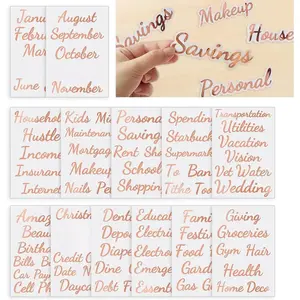 Janu
Febru
Mar
June
August
September
October
Makeup
House
Savings
Personal
Household
Hustle
Income
Insurance
Internet
Kids
Maintenan
Mortgag
Makeup
Nails
Persona
Savings
Rent
School
Shoppin
Spending
Starbuck
Supermark
Tires
Tithe
Transportation
Utilities
Vacation
Vision
Vet Water
Wedding
Amaz
Beau
Birthd
Bills
Car Pay
Christ
Credit C
Date N
Dent
Depo
Dine
Educat
Electr
Emerge
Essent
Fam
Festiv
Food
Garde
Gas
Giving
Groceries
Gym Hair
Health
Home Deco